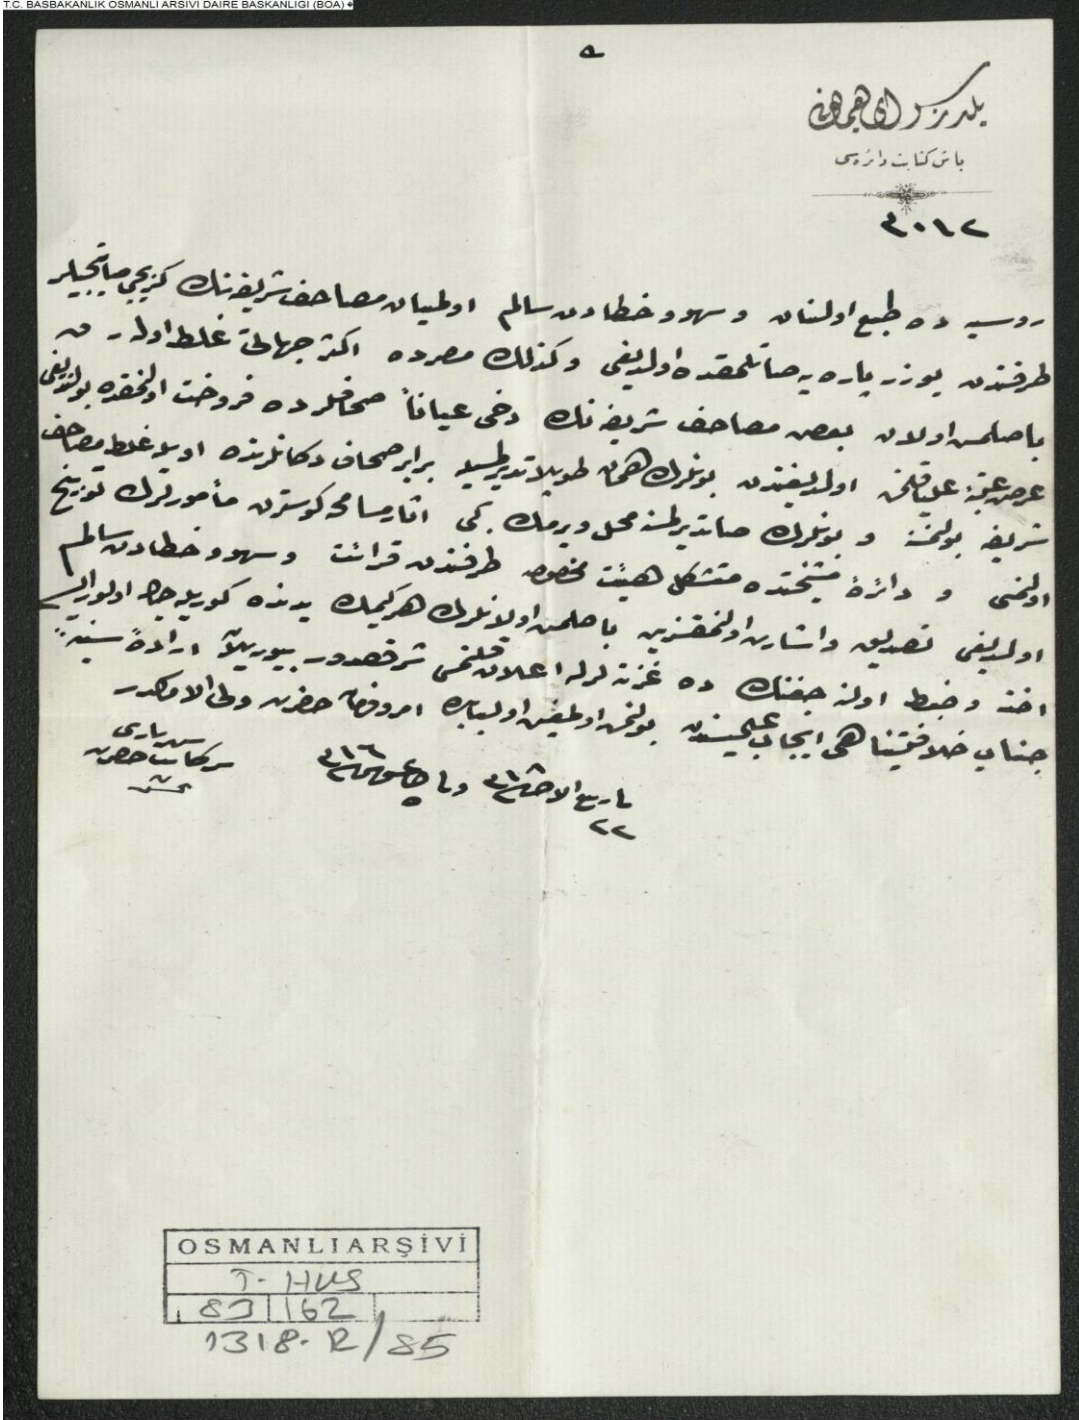 T.C. BASBAKANLIK OSMANLI ARSIVI DAIRE BASKANLIGI (BOA)
يلديز سراى همايونى
باش كتابت دائره‌سى
٣٠١٢
روسيه ده طبع اولنان و سهو و خطادن سالم اولميان مصاحف شريفه‌نك كزيجى صاتيجيلر
طرفندن يوزر پاره يه صاتلمقده اولديغى و كذلك مصرده اكثر جهاتى غلط اوله رق
باصلمش اولان بعض مصاحف شريفه نك دخى عياناً صحافلرده فروخت اولنمقده بولنديغى
عرض عتبهٔ عليا قلنمش اولديغندن بونلرك همان طوپلاتديرلمسيله برابر صحاف دكانلرنده اويله غلط مصاحف
شريفه بولنمسنه و بونلرك صاتديرلمسنه محل ويرمك كبى اثار مسامحه كوسترن مأمورلرك توبيخ
اولنمسى و دائرهٔ مشيختده متشكل هيئت مخصوصه طرفندن قرائت و سهو و خطادن سالم
اولديغى تصديق و اشارت اولنمقسزين باصلمش اولانلرك هر كيمك يدنده كوريله جك اولورايسه
اخذ و ضبط اولنه جغنك ده غزته لرله اعلان قلنمسى شرفصدور بيوريلان ارادهٔ سنيهٔ
جناب خلافتپناهى ايجاب عاليسندن بولنمش اولمغين اولبابده امر و فرمان حضرت ولى الامركدر
سركاتب حضرت
شهريارى
فى ٢٢ ربيع الاخر ٣١٨ و فى ٥ اغستوس ٣١٦
OSMANLI ARŞİVİ
Y. HUS
83 162
1318.R/85